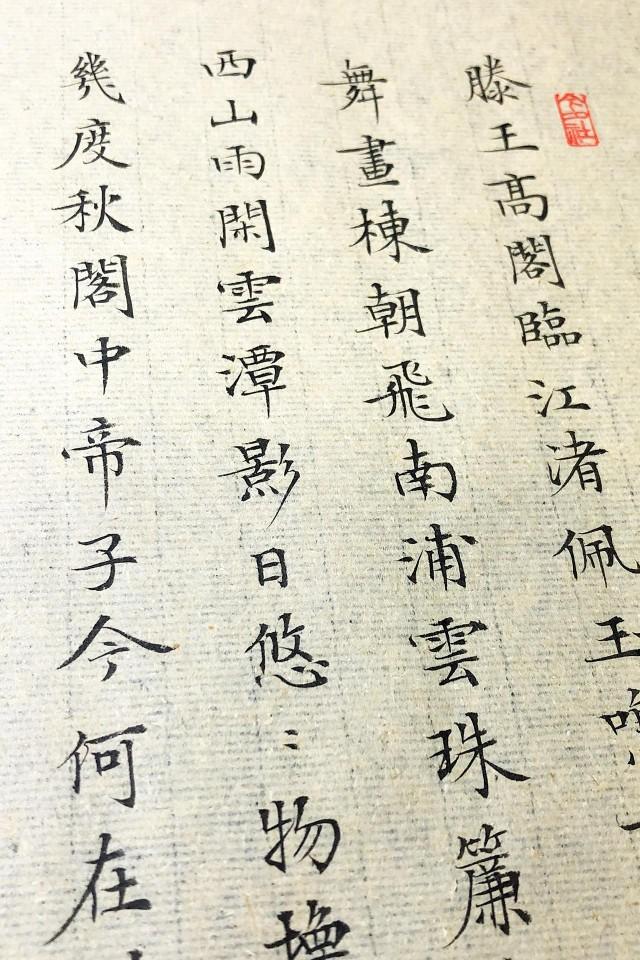 滕王髙閣臨江渚佩玉
舞畫棟朝飛南浦雲珠簾
西山雨閑雲潭影日悠〻物換
幾度秋閣中帝子今何在